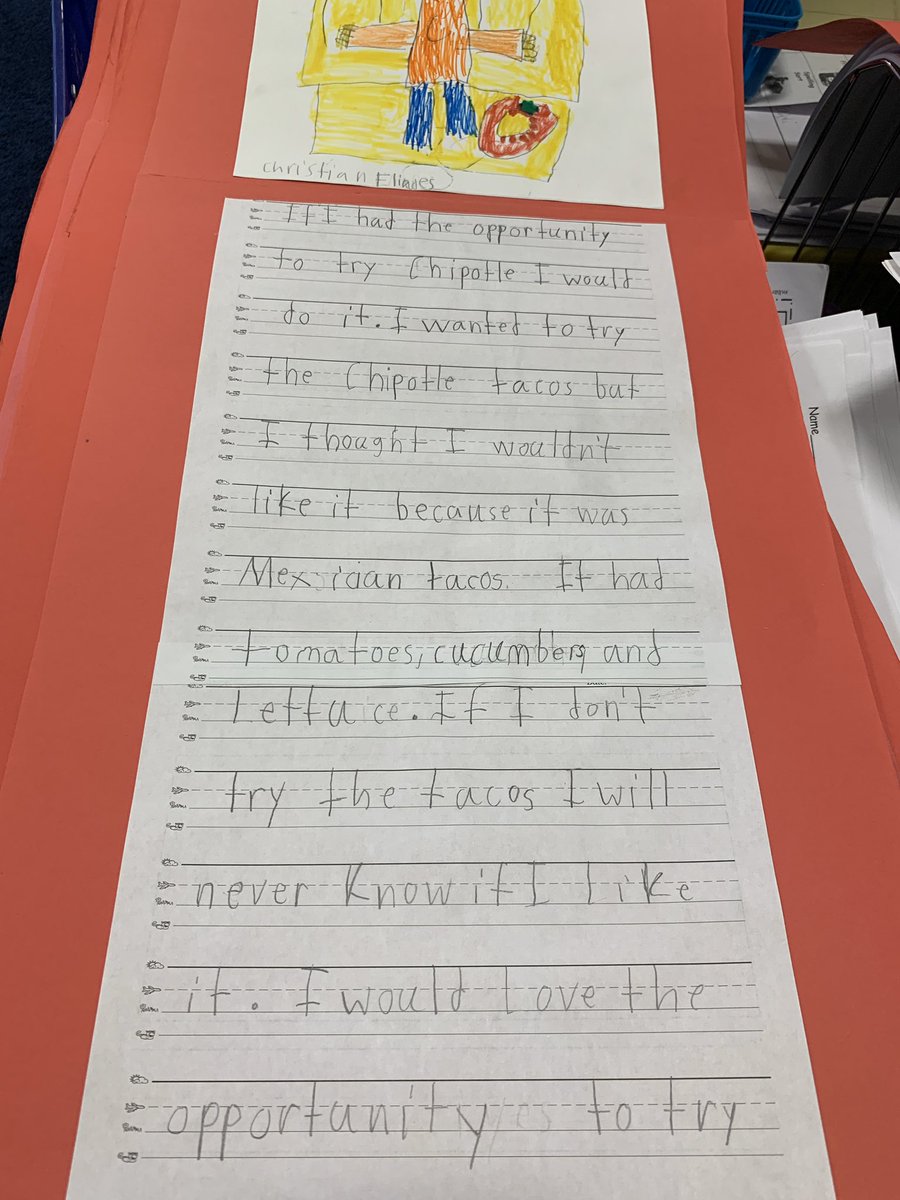 Christian Eliades
If I had the opportunity
to try Chipotle I would
do it. I wanted to try
the Chipotle tacos but
I thought I wouldn't
like it because it was
Mexician tacos. It had
tomatoes, cucumbers, and
Lettuce. If I don't
try the tacos I will
never know if I like
it. I would Love the
opportunity to try
Name